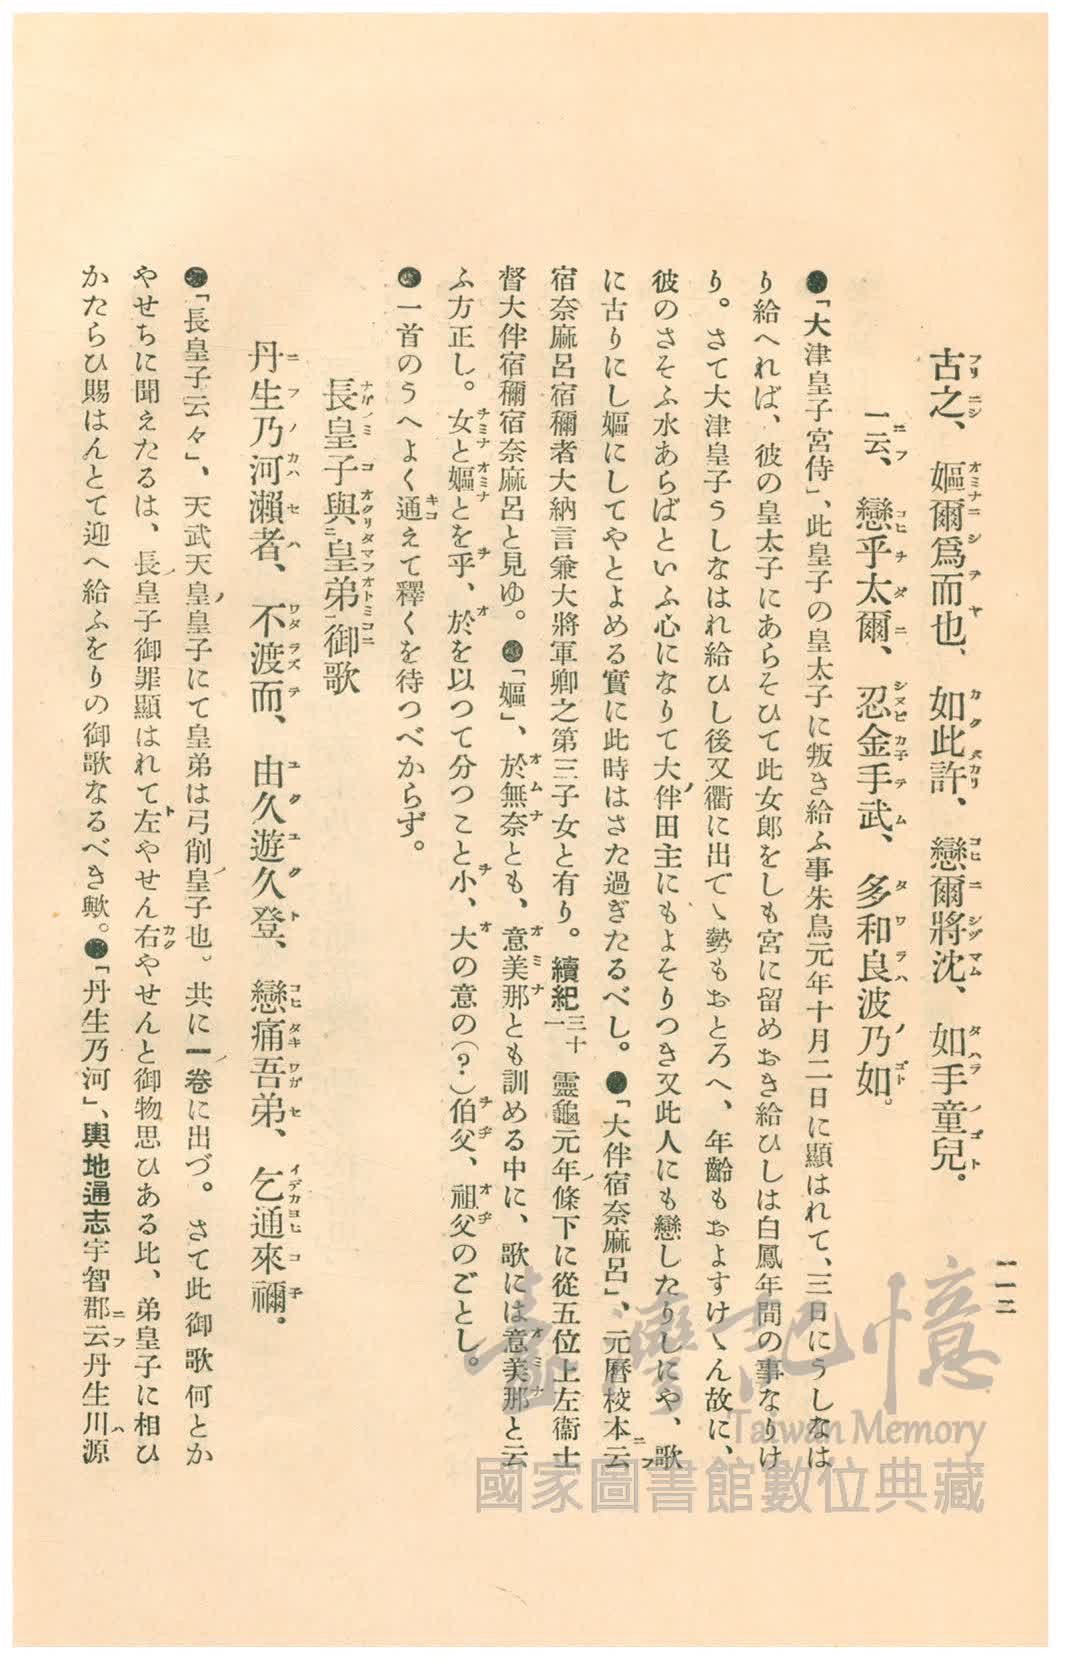 一一二
古之、嫗爾爲而也、如此許、戀爾將沈、如手童兒。
一云、戀乎太爾、忍金手武、多和良波乃如。
●「大津皇子宮侍」、此皇子の皇太子に叛き給ふ事朱鳥元年十月二日に顯はれて、三日にうしなは
り給へれば、彼の皇太子にあらそひて此女郎をしも宮に留めおき給ひしは白鳳年間の事なりけ
り。さて大津皇子うしなはれ給ひし後又衢に出でゝ勢もおとろへ、年齡もおよすけゝん故に、
彼のさそふ水あらばといふ心になりて大伴田主にもよそりつき又此人にも戀したりしにや、歌
に古りにし嫗にしてやとよめる實に此時はさた過ぎたるべし。●「大伴宿奈麻呂」、元曆校本云
宿奈麻呂宿禰者大納言兼大將軍卿之第三子女と有り。續紀三十一靈龜元年條下に從五位上左衞士
督大伴宿禰宿奈麻呂と見ゆ。●「嫗」、於無奈とも、意美那とも訓める中に、歌には意美那と云
ふ方正し。女と嫗とを乎、於を以つて分つこと小、大の意の(?)伯父、祖父のごとし。
●一首のうへよく通えて釋くを待つべからず。
長皇子與皇弟御歌
丹生乃河瀨者、不渡而、由久遊久登、戀痛吾弟、乞通來禰。
●「長皇子云々」、天武天皇皇子にて皇弟は弓削皇子也。共に一卷に出づ。さて此御歌何とか
やせちに聞えたるは、長皇子御罪顯はれて左やせん右やせんと御物思ひある比、弟皇子に相ひ
かたらひ賜はんとて迎へ給ふをりの御歌なるべき歟。●「丹生乃河」、輿地通志宇智郡云丹生川源
臺灣記憶
Taiwan Memory
國家圖書館數位典藏